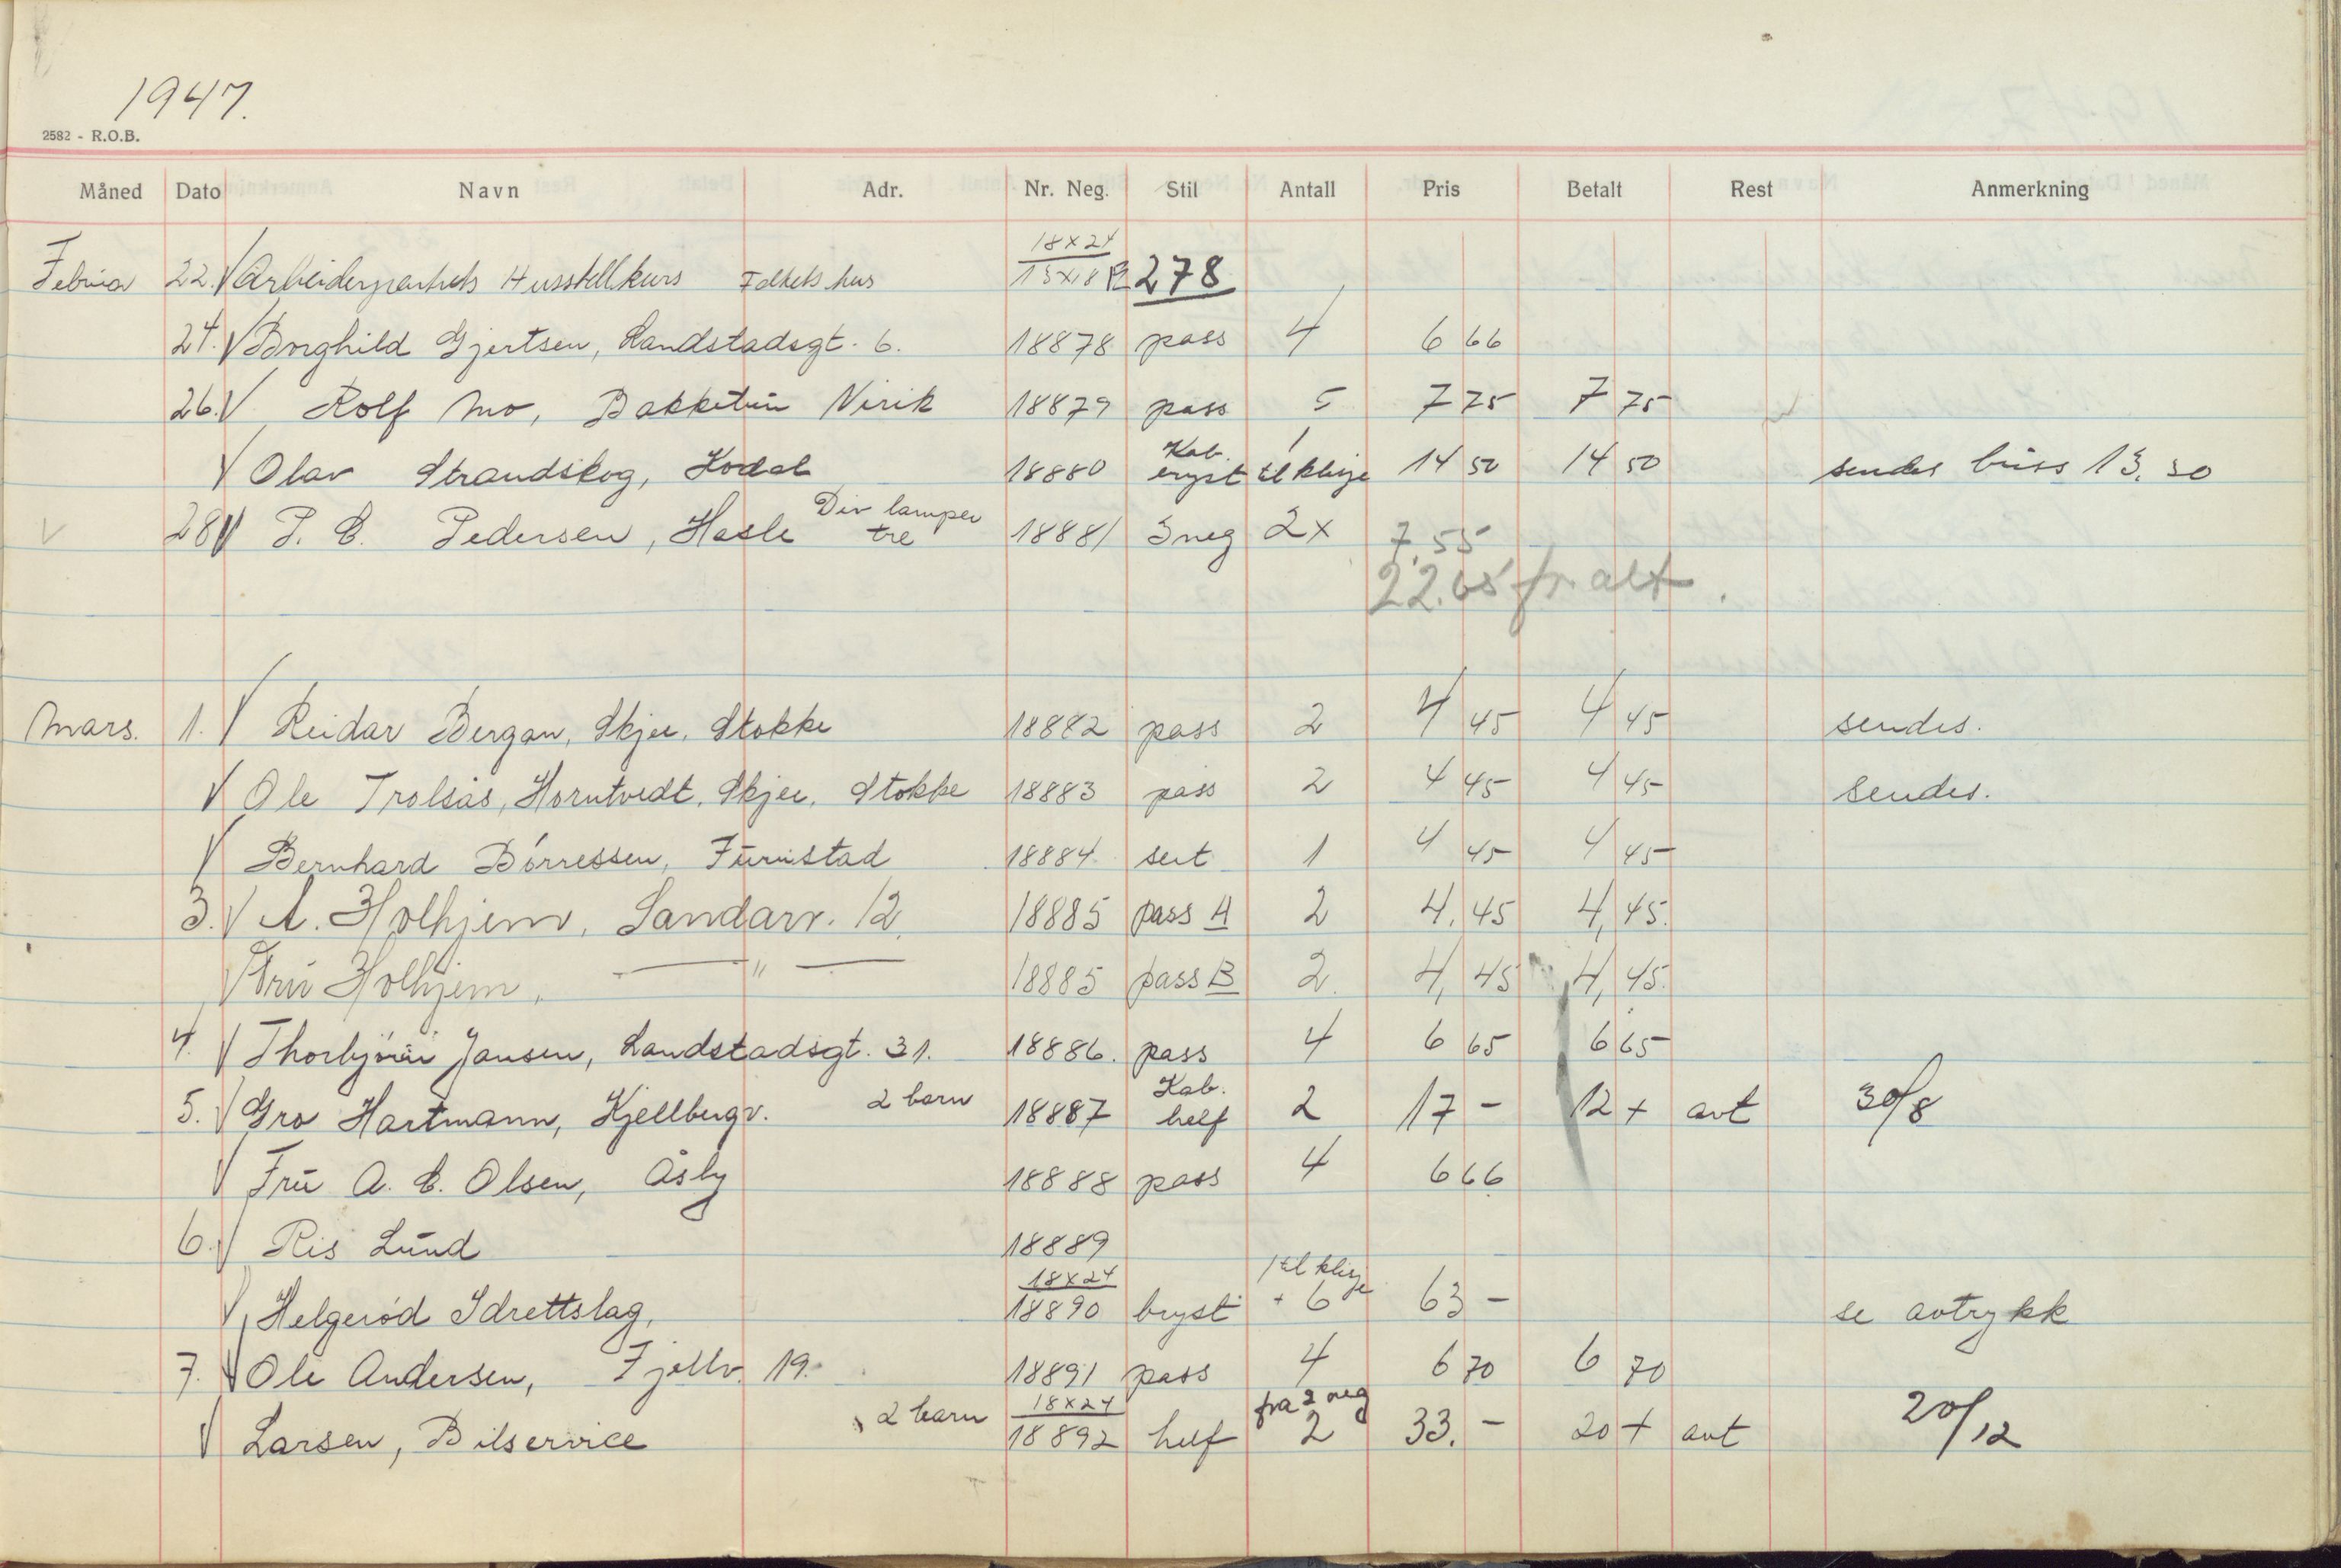 1947.
2582 - R.O.B.
Måned Dato Navn Adr. Nr. Neg. Stil Antall Pris Betalt Rest Anmerkning
18x24
Februar 22. V Arbeiderpartiets Husstellkurs Folkets hus 13x18 278
24. V Borghild Gjertsen, Landstadsgt. 6. 18878 pass 4 6 66
26. V Rolf Mo, Bakketun Virik 18879 pass 5 7 75 7 75
V Olav Strandskog, Kodal 18880 Kab. bryst 1 til klisje 14 50 14 50 sendes buss 13.30
V 28 V P. C. Pedersen, Hasle Div lamper tre 18881 3 neg 2x 7.55
22.65 for alt.
Mars. 1. V Reidar Bergan, Skjee, Stokke 18882 pass 2 4 45 4 45 sendes.
V Ole Trolsås, Horntvedt, Skjee, Stokke 18883 pass 2 4 45 4 45 sendes.
V Bernhard Börressen, Furustad 18884 sert 1 4 45 4 45
3. V A. Holhjem, Sandarv. 12. 18885 pass A 2 4, 45 4, 45.
V Fru Holhjem, — " — 18885 pass B 2. 4, 45 4, 45.
4. V Thorbjörn Jansen, Landstadsgt. 31. 18886. pass 4 6 65 6 65
5. V Gro Hartmann, Kjellbergv. 2 barn 18887 Kab. helf 2 17 - 12 + avt 30/8
V Fru A. C. Olsen, Åsly 18888 pass 4 6 66
6. V Ris Lund 18889
V Helgeröd Idrettslag, 18x24 18890 bryst 1 til klisje + 6 63 - se avtrykk
7. V Ole Andersen, Fjellv. 19. 18891 pass 4 6 70 6 70
V Larsen, Bilservice 2 barn 18x24 18892 helf fra 2 neg 2 33. - 20 + avt 20/12